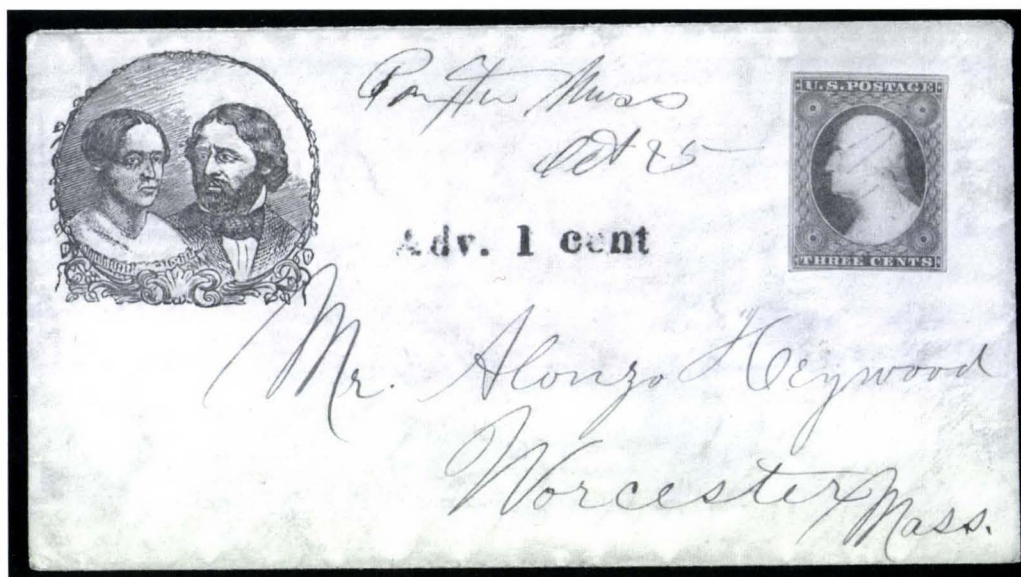 Mass
Oct 25
U.S. POSTAGE
THREE CENTS
Adv. 1 cent
Mr. Alonzo Heywood
Worcester
Mass.